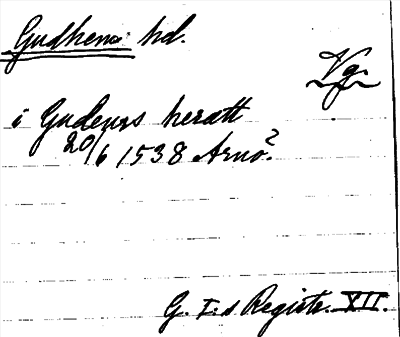 Gudhems hd.
Vg.
i Gudenss heratt
20/6 1538 Arnö?
G. I:s Registr. XII.